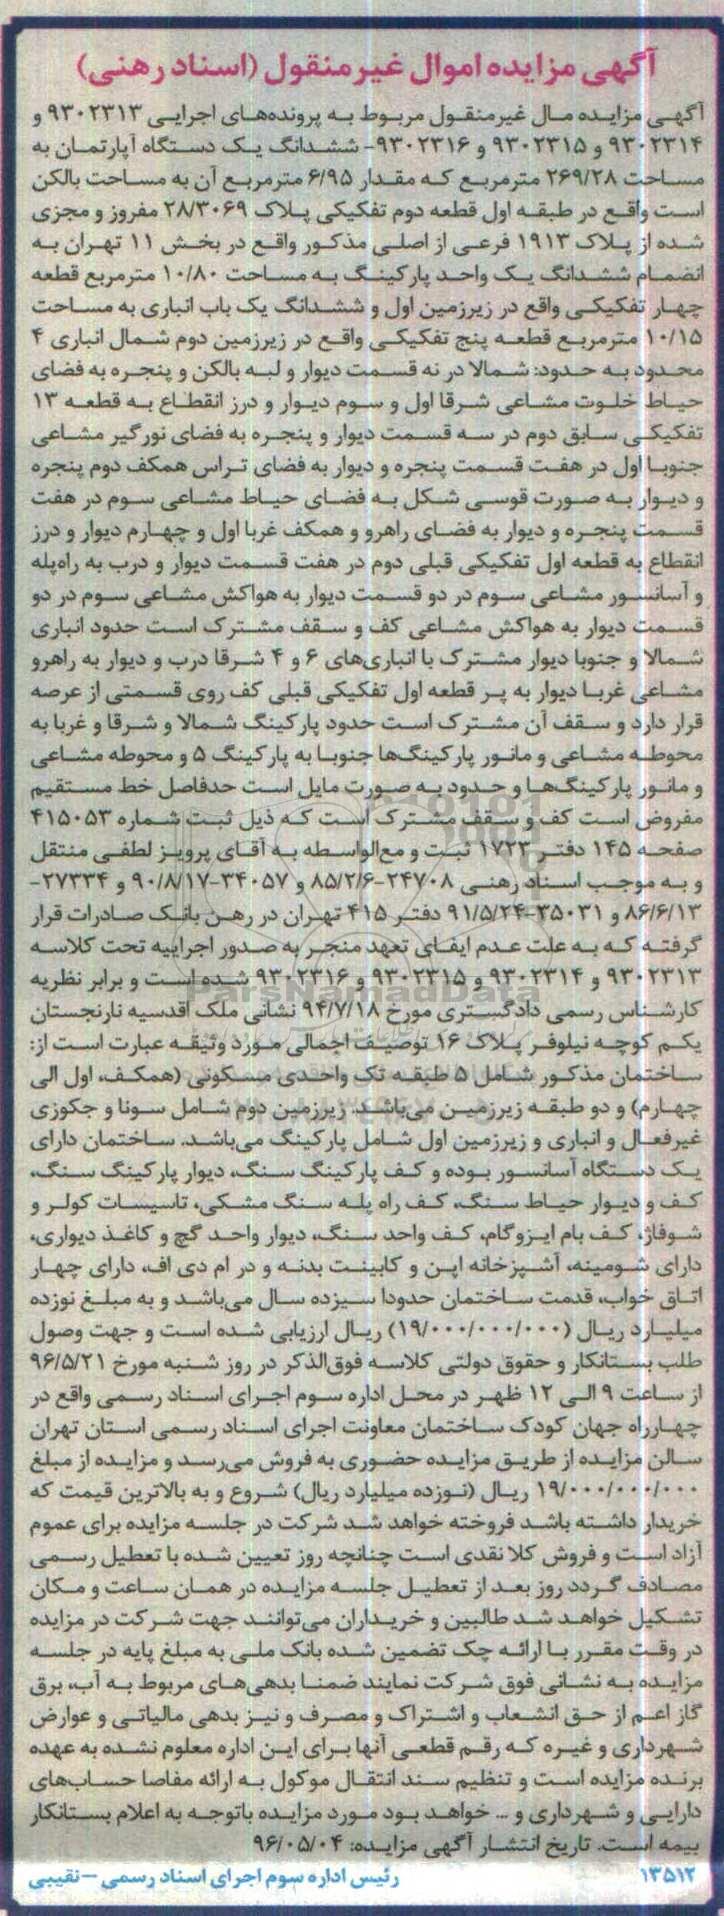 آگهی مزایده اموال غیرمنقول (اسناد رهنی)
آگهی مزایده مال غیرمنقول مربوط به پرونده‌های اجرایی ۹۳۰۲۳۱۳ و
۹۳۰۲۳۱۴ و ۹۳۰۲۳۱۵ و ۹۳۰۲۳۱۶- ششدانگ یک دستگاه آپارتمان به
مساحت ۲۶۹/۲۸ مترمربع که مقدار ۶/۹۵ مترمربع آن به مساحت بالکن
است واقع در طبقه اول قطعه دوم تفکیکی پلاک ۲۸/۳۰۶۹ مفروز و مجزی
شده از پلاک ۱۹۱۳ فرعی از اصلی مذکور واقع در بخش ۱۱ تهران به
انضمام ششدانگ یک واحد پارکینگ به مساحت ۱۰/۸۰ مترمربع قطعه
چهار تفکیکی واقع در زیرزمین اول و ششدانگ یک باب انباری به مساحت
۱۰/۱۵ مترمربع قطعه پنج تفکیکی واقع در زیرزمین دوم شمال انباری ۴
محدود به حدود: شمالا در نه قسمت دیوار و لبه بالکن و پنجره به فضای
حیاط خلوت مشاعی شرقا اول و سوم دیوار و درز انقطاع به قطعه ۱۳
تفکیکی سابق دوم در سه قسمت دیوار و پنجره به فضای نورگیر مشاعی
جنوبا اول در هفت قسمت پنجره و دیوار به فضای تراس همکف دوم پنجره
و دیوار به صورت قوسی شکل به فضای حیاط مشاعی سوم در هفت
قسمت پنجره و دیوار به فضای راهرو و همکف غربا اول و چهارم دیوار و درز
انقطاع به قطعه اول تفکیکی قبلی دوم در هفت قسمت دیوار و درب به راه‌پله
و آسانسور مشاعی سوم در دو قسمت دیوار به هواکش مشاعی سوم در دو
قسمت دیوار به هواکش مشاعی کف و سقف مشترک است حدود انباری
شمالا و جنوبا دیوار مشترک با انباری‌های ۶ و ۴ شرقا درب و دیوار به راهرو
مشاعی غربا دیوار به پر قطعه اول تفکیکی قبلی کف روی قسمتی از عرصه
قرار دارد و سقف آن مشترک است حدود پارکینگ شمالا و شرقا و غربا به
محوطه مشاعی و مانور پارکینگ‌ها جنوبا به پارکینگ ۵ و محوطه مشاعی
و مانور پارکینگ‌ها و حدود به صورت مایل است حدفاصل خط مستقیم
مفروض است کف و سقف مشترک است که ذیل ثبت شماره ۴۱۵۰۵۳
صفحه ۱۴۵ دفتر ۱۷۲۳ ثبت و مع‌الواسطه به آقای پرویز لطفی منتقل
و به موجب اسناد رهنی ۲۴۷۰۸-۸۵/۲/۶ و ۳۴۰۵۷-۹۰/۸/۱۷ و ۲۷۳۳۴-
۸۶/۶/۱۳ و ۳۵۰۳۱-۹۱/۵/۲۴ دفتر ۴۱۵ تهران در رهن بانک صادرات قرار
گرفته که به علت عدم ایفای تعهد منجر به صدور اجراییه تحت کلاسه
۹۳۰۲۳۱۳ و ۹۳۰۲۳۱۴ و ۹۳۰۲۳۱۵ و ۹۳۰۲۳۱۶ شده است و برابر نظریه
کارشناس رسمی دادگستری مورخ ۹۴/۷/۱۸ نشانی ملک اقدسیه نارنجستان
یکم کوچه نیلوفر پلاک ۱۶ توصیف اجمالی مورد وثیقه عبارت است از:
ساختمان مذکور شامل ۵ طبقه تک واحدی مسکونی (همکف، اول الی
چهارم) و دو طبقه زیرزمین می‌باشد. زیرزمین دوم شامل سونا و جکوزی
غیرفعال و انباری و زیرزمین اول شامل پارکینگ می‌باشد. ساختمان دارای
یک دستگاه آسانسور بوده و کف پارکینگ سنگ، دیوار پارکینگ سنگ،
کف و دیوار حیاط سنگ، کف راه پله سنگ مشکی، تاسیسات کولر و
شوفاژ، کف بام ایزوگام، کف واحد سنگ، دیوار واحد گچ و کاغذ دیواری،
دارای شومینه، آشپزخانه اپن و کابینت بدنه و در ام دی اف، دارای چهار
اتاق خواب، قدمت ساختمان حدودا سیزده سال می‌باشد و به مبلغ نوزده
میلیارد ریال (۱۹/۰۰۰/۰۰۰/۰۰۰) ریال ارزیابی شده است و جهت وصول
طلب بستانکار و حقوق دولتی کلاسه فوق‌الذکر در روز شنبه مورخ ۹۶/۵/۲۱
از ساعت ۹ الی ۱۲ ظهر در محل اداره سوم اجرای اسناد رسمی واقع در
چهارراه جهان کودک ساختمان معاونت اجرای اسناد رسمی استان تهران
سالن مزایده از طریق مزایده حضوری به فروش می‌رسد و مزایده از مبلغ
۱۹/۰۰۰/۰۰۰/۰۰۰ ریال (نوزده میلیارد ریال) شروع و به بالاترین قیمت که
خریدار داشته باشد فروخته خواهد شد شرکت در جلسه مزایده برای عموم
آزاد است و فروش کلا نقدی است چنانچه روز تعیین شده با تعطیل رسمی
مصادف گردد روز بعد از تعطیل جلسه مزایده در همان ساعت و مکان
تشکیل خواهد شد طالبین و خریداران می‌توانند جهت شرکت در مزایده
در وقت مقرر با ارائه چک تضمین شده بانک ملی به مبلغ پایه در جلسه
مزایده به نشانی فوق شرکت نمایند ضمنا بدهی‌های مربوط به آب، برق
گاز اعم از حق انشعاب و اشتراک و مصرف و نیز بدهی مالیاتی و عوارض
شهرداری و غیره که رقم قطعی آنها برای این اداره معلوم نشده به عهده
برنده مزایده است و تنظیم سند انتقال موکول به ارائه مفاصا حساب‌های
دارایی و شهرداری و ... خواهد بود مورد مزایده باتوجه به اعلام بستانکار
بیمه است. تاریخ انتشار آگهی مزایده: ۹۶/۰۵/۰۴
۱۳۵۱۲ رئیس اداره سوم اجرای اسناد رسمی – نقیبی
ParsNamadData